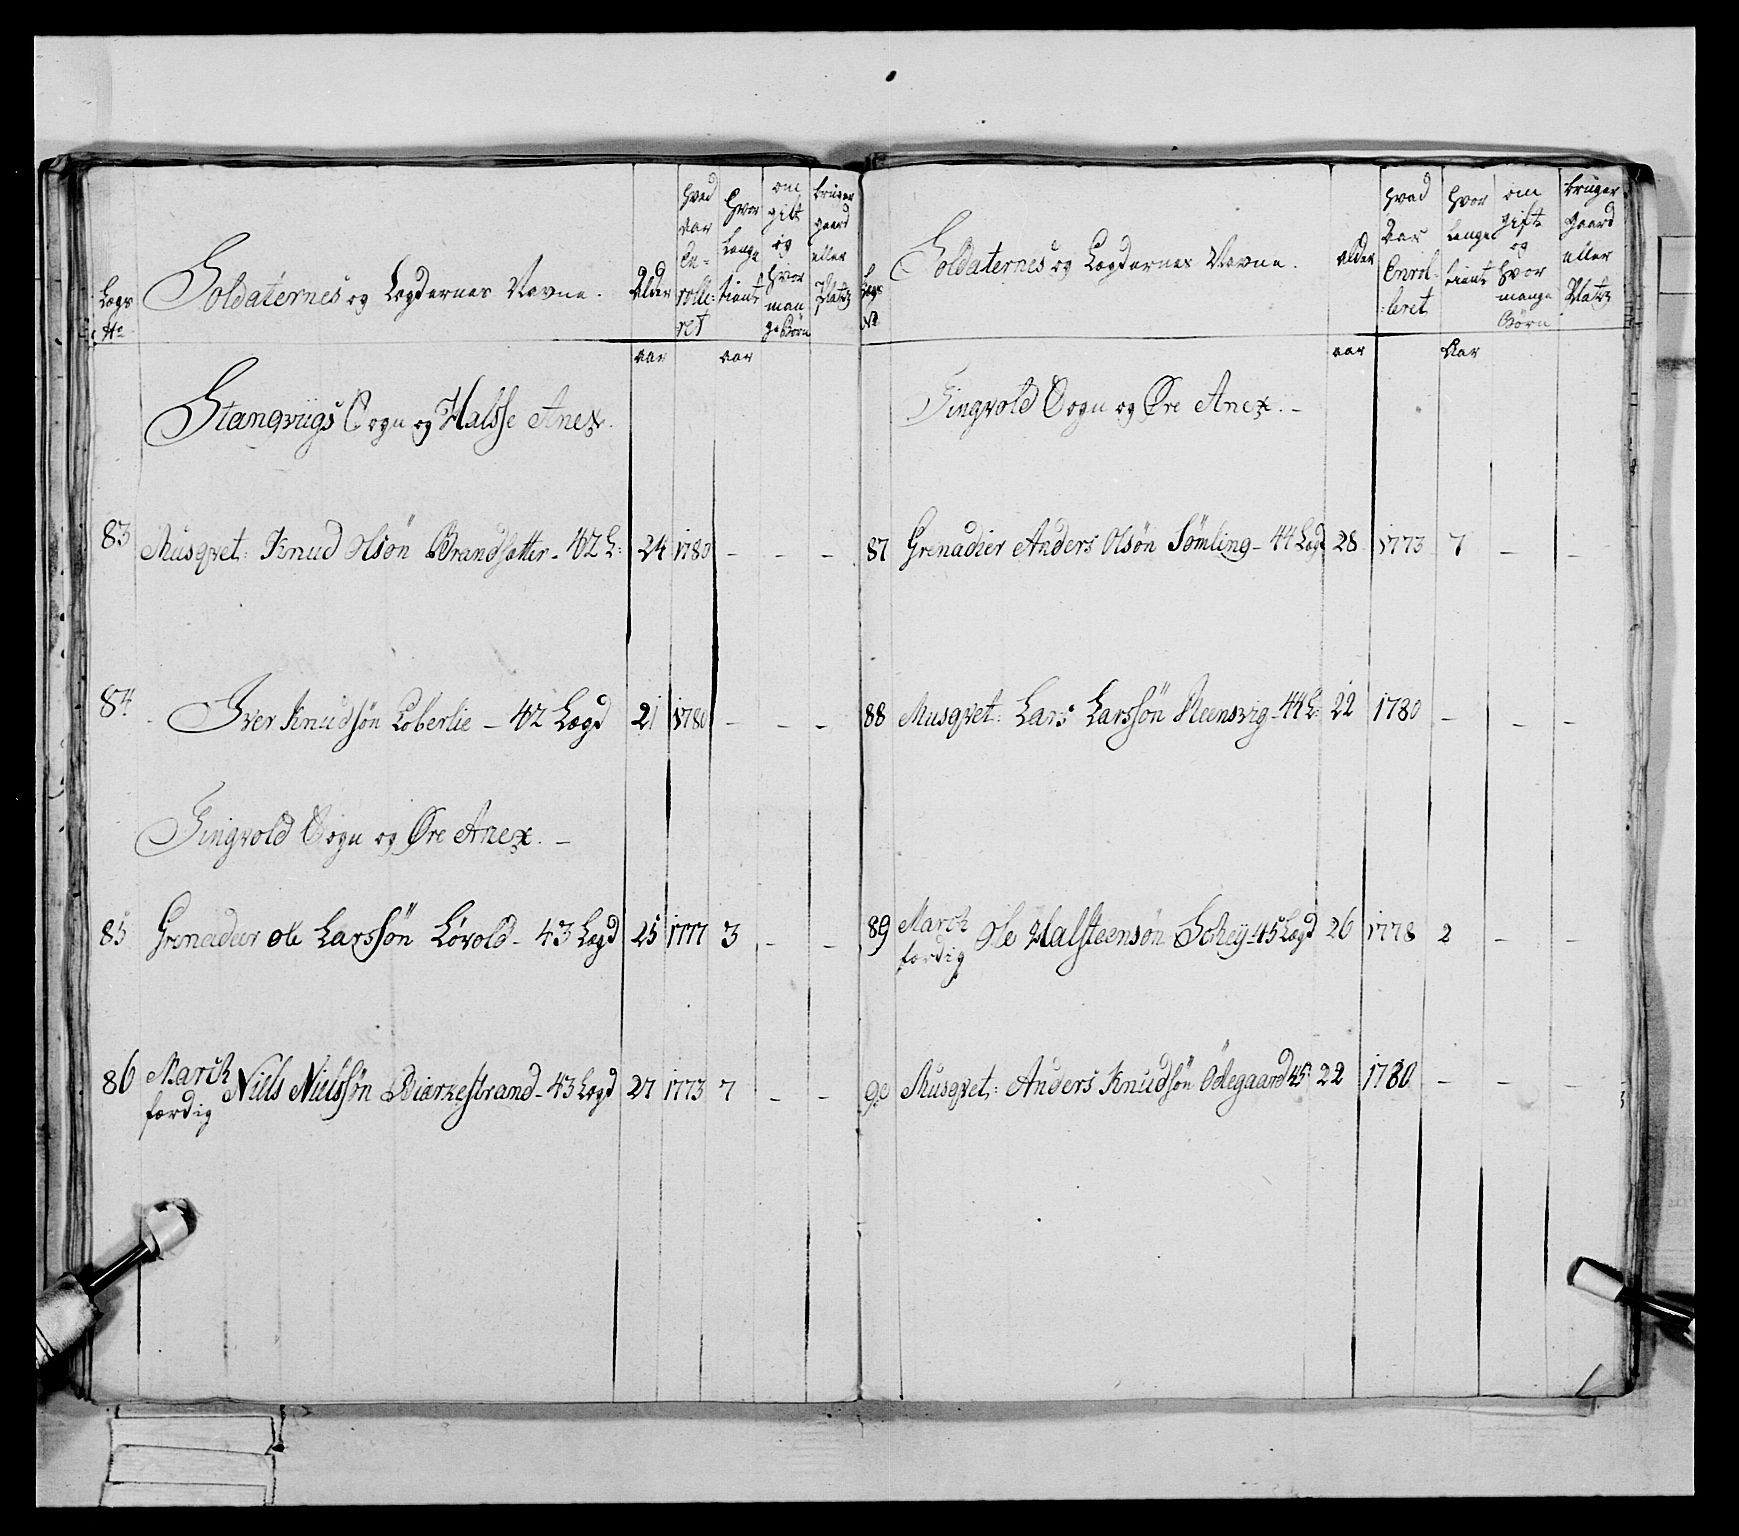 Lægs No
Soldaternes og Legdernes Navne.
Alder
hvad aar En- rolle- ret
hvor lenge tient
om gift og hvor man ge Børn
bruger gaard eller Platz
aar
aar
Stangviigs Sogn og Halsse Anex.
83 Musqvet: Knud Olsön Brandsætter - 42 L: 24 1780 - - -
84 Iver Knudsön Loberlie - 42 Lægd 21 1780 - - -
Tingvold Sogn og Øre Anex. -
85 Grenadeer Ole Larssön Lövold - 43 Lægd 25 1777 3 - -
86 March færdig Niels Nielssön Biærkestrand - 43 Legd 27 1773 7 - -
Legs No
Soldaternes og Legdernes Navne.
alder
hvad Aar Enrol- leret
hvor lenge tient
om gift og hvor mange Börn
bruger gaard eller Platz
aar
Aar
Tingvold Sogn og Øre Anex. -
87 Grenadier Anders Olsön Sømling - 44 Legd 28 1773 7 - -
88 Musqvet: Lars Larssön Neensvig - 44 L: 22 1780 - - -
89 March færdig Ole Halsteensön Schey - 45 Lægd 26 1778 2 - -
90 Musqvet: Anders Knudsön Ödegaard 45 22 1780 - - -